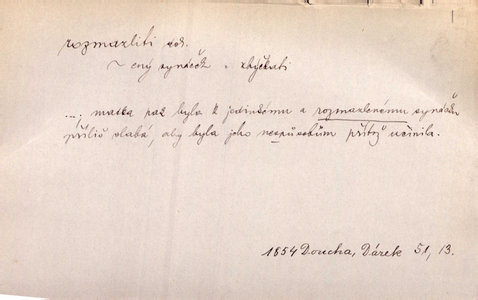 rozmazliti dok.
~ ený synáček
...; matka pak byla k jedinkému a rozmazlenému synáčku
příliš slabá, aby byla jeho nezpůsobům přítrž učinila.
1854 Doucha, Dárek 51, 13.